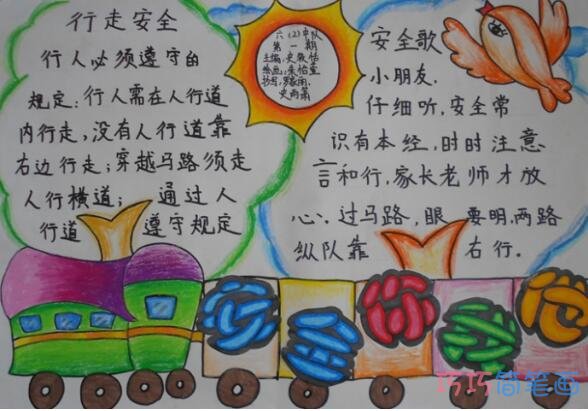 行走安全
行人必须遵守的
规定：行人需在人行道
内行走，没有人行道靠
右边行走；穿越马路须走
人行横道； 通过人
行道 遵守规定
六（2）中队
第一期
主编：史
绘画：朱怡莹
书写：
安全歌
小朋友.
仔细听，安全常
识有本经，时时注意
言和行，家长老师才放
心. 过马路，眼要明，两路
纵队靠 右行.
安全你我他
巧巧简笔画